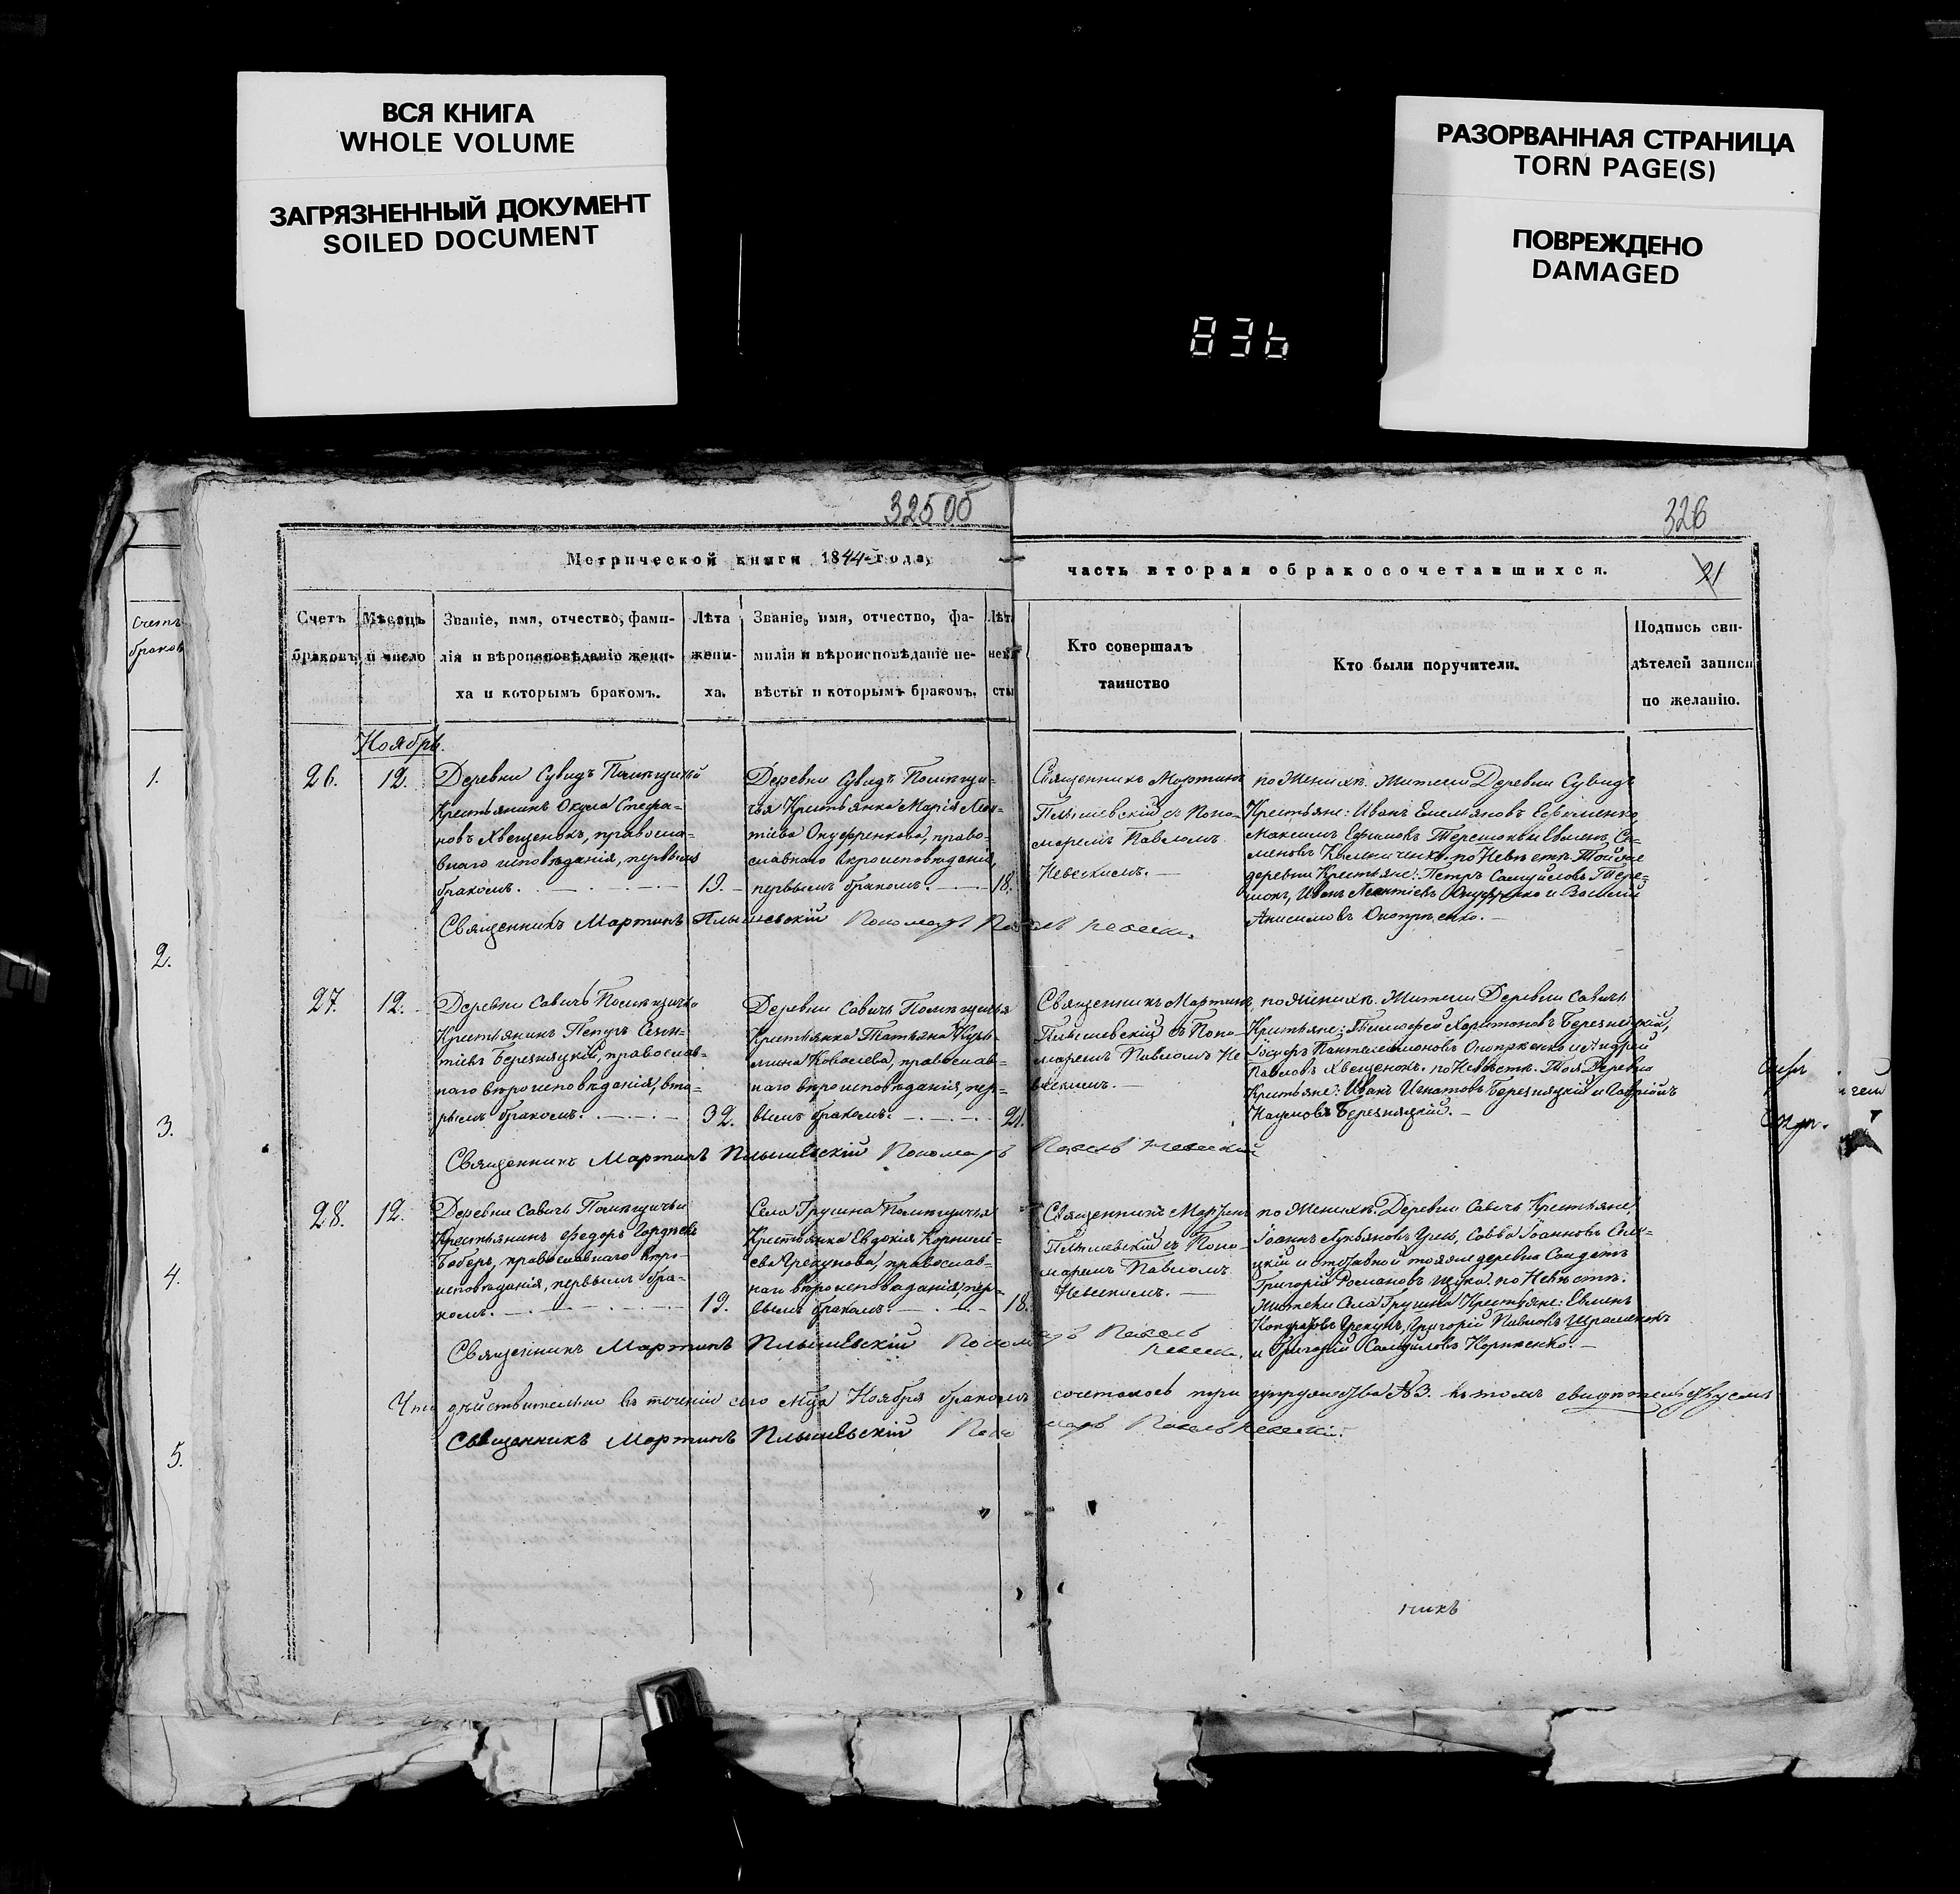 ВСЯ КНИГА
WHOLE VOLUME
ЗАГРЯЗНЕННЫЙ ДОКУМЕНТ
SOILED DOCUMENT
РАЗОРВАННАЯ СТРАНИЦА
TORN PAGE(S)
ПОВРЕЖДЕНО
DAMAGED
836
325 об
326
21
Метрической книги 1844 года,
часть вторая о бракосочетавшихся.
Счетъ
браковъ
Счетъ браковъ
Мѣсяцъ и число
Званіе, имя, отчество, фами-
лія и вѣроисповѣданіе жени-
ха и которымъ бракомъ.
Лѣта
жени-
ха.
Званіе, имя, отчество, фа-
милія и вѣроисповѣданіе не-
вѣсты и которымъ бракомъ.
Лѣта
невѣ
сты
Кто совершалъ
таинство
Кто были поручители.
Подпись сви-
дѣтелей записи
по желанію.
1.
2.
3.
4.
5.
Ноябрь.
26.
12.
Деревни Сувидъ
Крестьянинъ Окула Стефа-
новъ Хвещенокъ, правосла-
внаго исповѣданія, первымъ
бракомъ.
19.
Деревни Сувидъ
Крестьянка Марія Леон-
тіева Онуфренкова, право-
славнаго вѣроисповѣданія,
первымъ бракомъ.
18.
Священникъ Мартинъ
съ Поно-
маремъ Павломъ
Невскимъ.
по Женихѣ. Жители Деревни Сувидъ
Крестьяне: Иванъ Емельяновъ Ефименко
Максимъ Ефимовъ Терешокъ и Евменъ Се-
меновъ по Невѣстѣ. Той же
деревни Крестьяне: Петръ Самуиловъ Тере-
шокъ, Иванъ Леонтіевъ Онуфренко и Василій
Анисимовъ Оноприенко.
Священникъ Мартинъ Пономарь Павелъ
27.
12.
Деревни Савичъ
Крестьянинъ Петръ
Березняцкій, православ-
наго вѣроисповѣданія, вто-
рымъ бракомъ.
32.
Деревни Савичъ
Крестьянка Татьяна Кузь-
мина Ковалева, православ-
наго вѣроисповѣданія, пер-
вымъ бракомъ.
21.
Священникъ Мартинъ
съ Поно-
маремъ Павломъ Не-
вскимъ.
по Женихѣ. Жители Деревни Савичъ
Крестьяне: Тимофей Харитоновъ Березняцкій,
Іосифъ Пантелеимоновъ Оноприенко и Андрей
Павловъ Хвещенокъ. по Невѣстѣ. Тоя Деревни
Крестьяне: Иванъ Игнатовъ Березняцкій и Гавріилъ
Наумовъ Березняцкій.
Священникъ Мартинъ Пономарь Павелъ Невскій
28.
12.
Деревни Савичъ
Крестьянинъ Федоръ Гордѣевъ
Боберъ, православнаго вѣро-
исповѣданія, первымъ бра-
комъ.
19.
Села Грушна
Крестьянка Евдокія Корнилі-
ева Грекунова, православ-
наго вѣроисповѣданія, пер-
вымъ бракомъ.
18.
Священникъ Мартинъ
съ Поно-
маремъ Павломъ
Невскимъ.
по Женихѣ. Деревни Савичъ Крестьяне:
Іоаннъ Лукьяновъ Савва Іоанновъ
и отставной тояже деревни Солдатъ
Григорій Романовъ Щука. по Невѣстѣ.
Жители Села Грушна Крестьяне: Евменъ
Кондратовъ Грекунъ, Григорій Павловъ
и Григорій Самуиловъ Корніенко.
Священникъ Мартинъ Пономарь Павелъ
Что дѣйствительно въ теченіи сего мѣсяца Ноября бракомъ сочеталось три супружества №3. въ томъ свидѣтельствуемъ
Священникъ Мартинъ Пономарь Павелъ Невскій
никъ